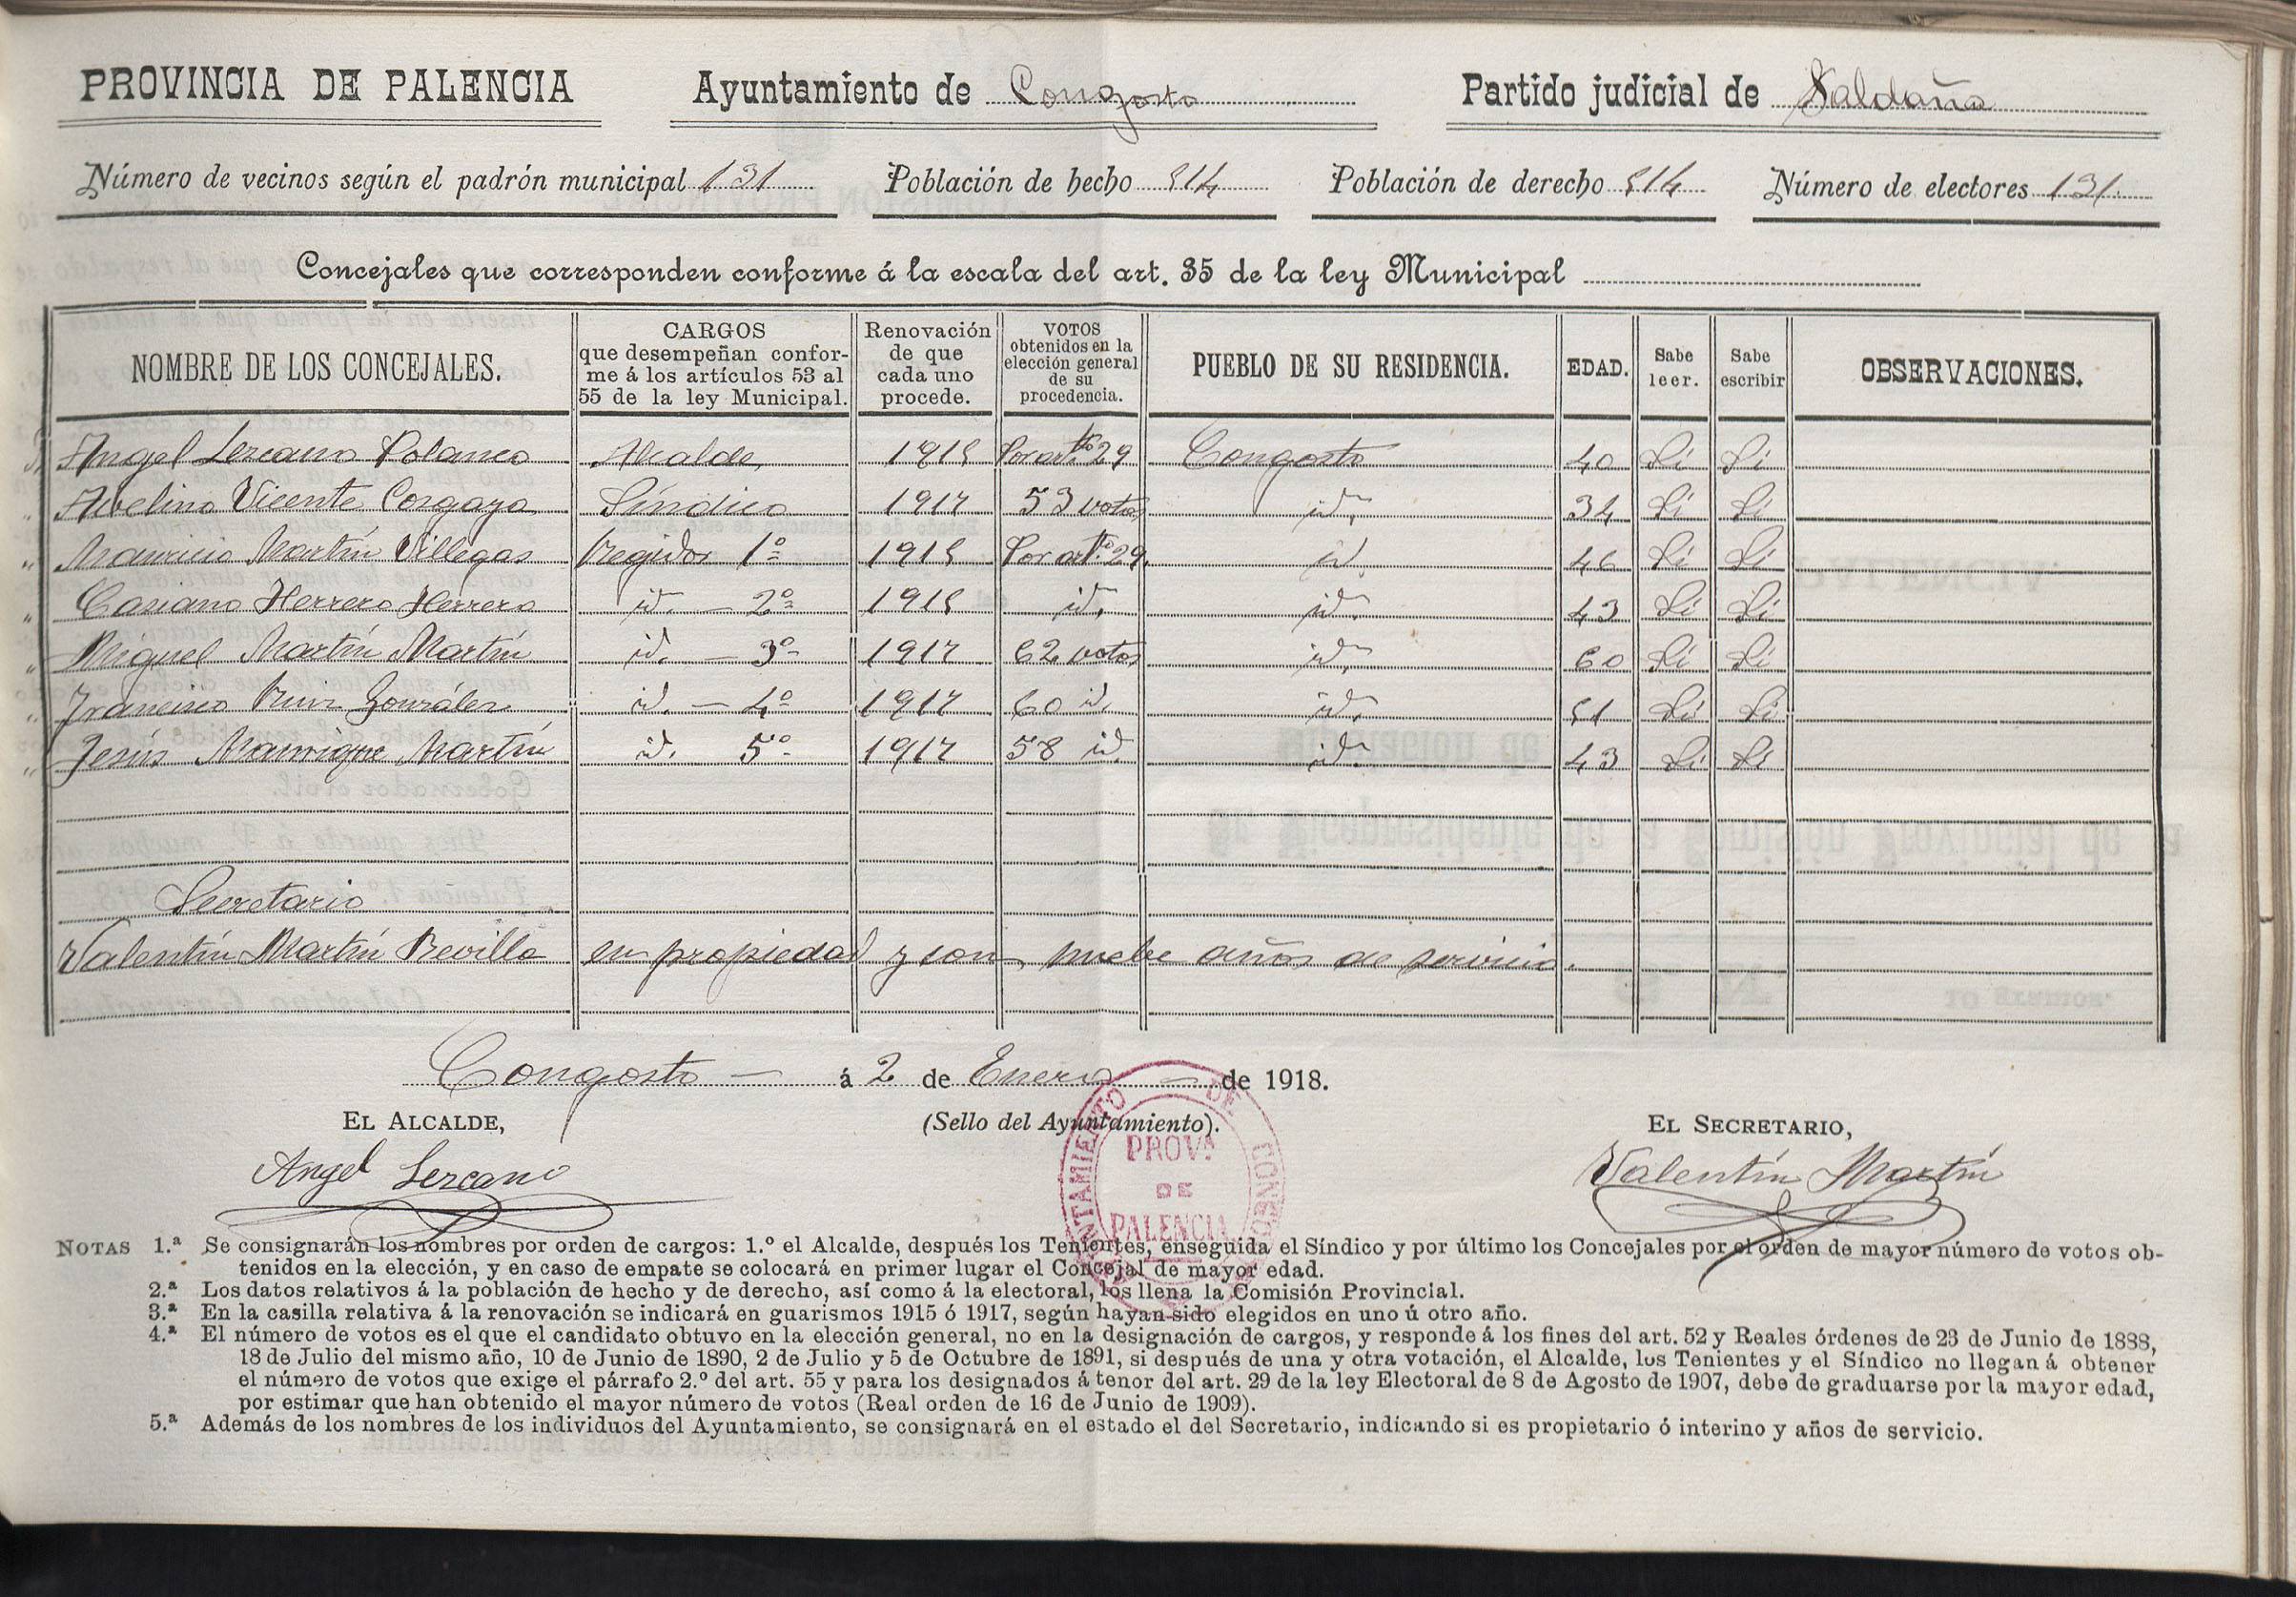 PROVINCIA DE PALENCIA Ayuntamiento de Congosto Partido judicial de Saldaña
Número de vecinos según el padrón municipal 131 Población de hecho 514 Población de derecho 514 Número de electores 131.
Concejales que corresponden conforme á la escala del art. 35 de la ley Municipal
NOMBRE DE LOS CONCEJALES. CARGOS que desempeñan conforme á los artículos 53 al 55 de la ley Municipal. Renovación de que cada uno procede. VOTOS obtenidos en la elección general de su procedencia. PUEBLO DE SU RESIDENCIA. EDAD. Sabe leer. Sabe escribir OBSERVACIONES.
D. Angel Lezcano Polanco Alcalde 1915 Por artº 29 Congosto 40 Si Si
" Avelino Vicente Corgaya Síndico 1917 53 votos id. 34 Si Si
" Mauricio Martín Villegas Regidor 1º 1915 Por artº 29. id. 46 Si Si
" Casiano Herrero Herrero id. — 2º 1915 id. id. 43 Si Si
" Miguel Martín Martín id. — 3º 1917 62 votos id. 60 Si Si
" Francisco Ruiz González id. — 4º 1917 60 id. id. 51 Si Si
" Jesús Manrique Martín id. 5º 1917 58 id. id. 43 Si Si
Secretario
Valentín Martín Revilla en propiedad y con nuebe años de servicio.
Congosto — á 2 de Enero — de 1918.
EL ALCALDE, (Sello del Ayuntamiento). EL SECRETARIO,
Angel Lezcano Valentín Martín
AYUNTAMIENTO DE CONGOSTO
PROVA
DE
PALENCIA
NOTAS 1.ª Se consignarán los nombres por orden de cargos: 1.º el Alcalde, después los Tenientes, enseguida el Síndico y por último los Concejales por el orden de mayor número de votos ob-
tenidos en la elección, y en caso de empate se colocará en primer lugar el Concejal de mayor edad.
2.ª Los datos relativos á la población de hecho y de derecho, así como á la electoral, los llena la Comisión Provincial.
3.ª En la casilla relativa á la renovación se indicará en guarismos 1915 ó 1917, según hayan sido elegidos en uno ú otro año.
4.ª El número de votos es el que el candidato obtuvo en la elección general, no en la designación de cargos, y responde á los fines del art. 52 y Reales órdenes de 23 de Junio de 1888,
18 de Julio del mismo año, 10 de Junio de 1890, 2 de Julio y 5 de Octubre de 1891, si después de una y otra votación, el Alcalde, los Tenientes y el Síndico no llegan á obtener
el número de votos que exige el párrafo 2.º del art. 55 y para los designados á tenor del art. 29 de la ley Electoral de 8 de Agosto de 1907, debe de graduarse por la mayor edad,
por estimar que han obtenido el mayor número de votos (Real orden de 16 de Junio de 1909).
5.ª Además de los nombres de los individuos del Ayuntamiento, se consignará en el estado el del Secretario, indicando si es propietario ó interino y años de servicio.